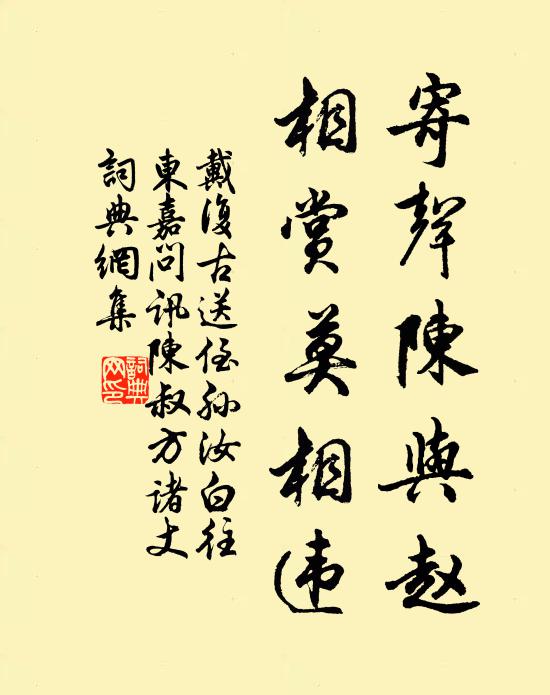 寄聲陳與趙
相賞莫相違
戴復古送侄孫汝白往
東嘉問訊陳叔方諸丈
詞典網集
詞典
网印